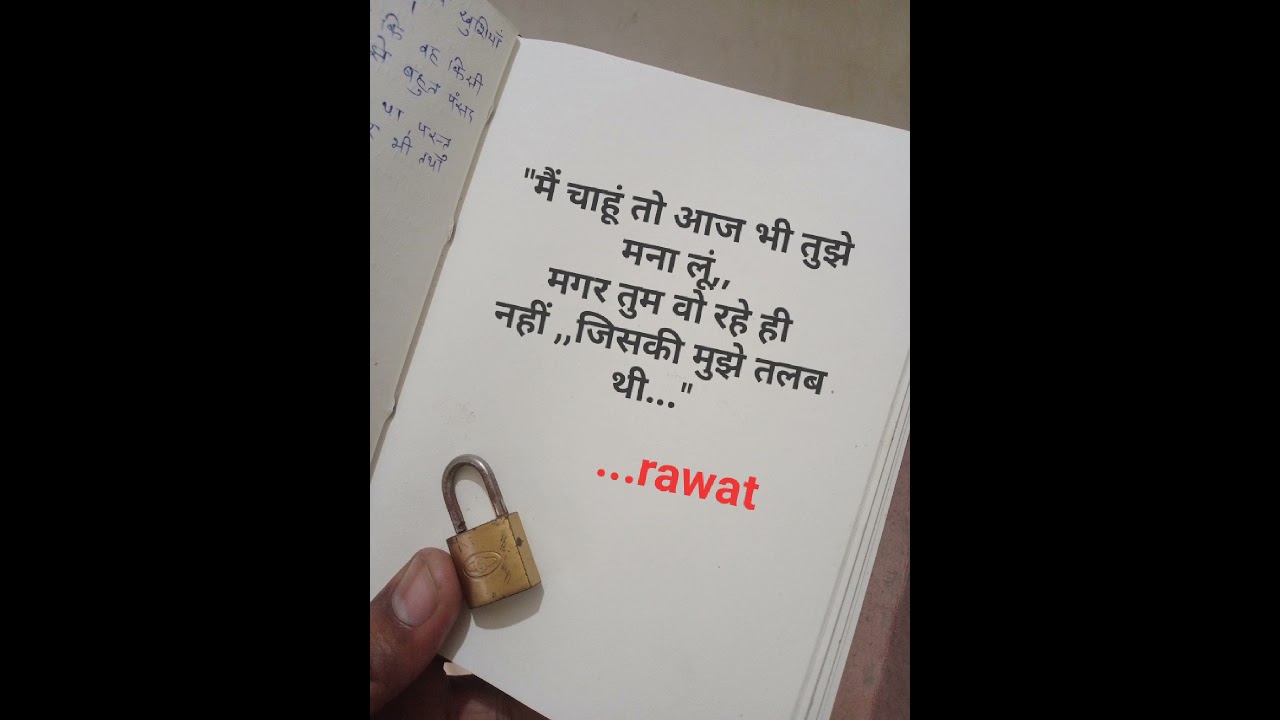 खुशियाँ
कि वह किसी
बहुत पंसद
था, परन्त
भी
"मैं चाहूं तो आज भी तुझे
मना लूं,,
मगर तुम वो रहे ही
नहीं ,,जिसकी मुझे तलब
थी..."
...rawat